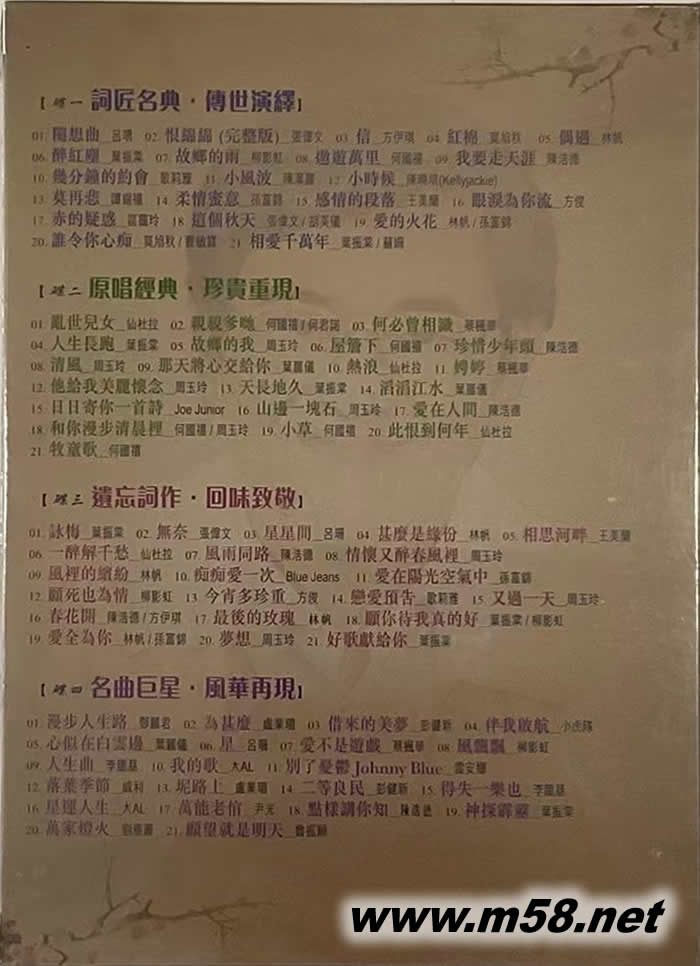 【碟一 詞匠名典・傳世演繹】
01. 隨想曲_呂珊 02. 恨綿綿 (完整版)_張偉文 03. 信_方伊琪 04. 紅棉_莫培秋 05. 偶遇_林帆
06. 醉紅塵_葉振棠 07. 故鄉的雨_柳影虹 08. 遨遊萬里_何國禧 09. 我要走天涯_陳浩德
10. 幾分鐘的約會_歌莉雅 11. 小風波_陳潔靈 12. 小時候_陳曉琪(Kellyjackie)
13. 莫再悲_譚錫禧 14. 柔情蜜意_孫富錦 15. 感情的段落_王美蘭 16. 眼淚為你流_方俊
17. 赤的疑惑_區靄玲 18. 這個秋天_張偉文 / 胡美儀 19. 愛的火花_林帆 / 孫富錦
20. 誰令你心痴_莫培秋 / 曹敏寶 21. 相愛千萬年_葉振棠 / 蘇珊
【碟二 原唱經典・珍貴重現】
01. 亂世兒女_仙杜拉 02. 親親爹哋_何國禧 / 何君諾 03. 何必曾相識_蔡楓華
04. 人生長跑_葉振棠 05. 故鄉的我_周玉玲 06. 屋簷下_何國禧 07. 珍惜少年頭_陳浩德
08. 清風_周玉玲 09. 那天將心交給你_葉麗儀 10. 熱浪_仙杜拉 11. 娉婷_蔡楓華
12. 他給我美麗懷念_周玉玲 13. 天長地久_葉振棠 14. 滔滔江水_葉麗儀
15. 日日寄你一首詩_Joe Junior 16. 山邊一塊石_周玉玲 17. 愛在人間_陳浩德
18. 和你漫步清晨裡_何國禧 / 周玉玲 19. 小草_何國禧 20. 此恨到何年_仙杜拉
21. 牧童歌_何國禧
【碟三 遺忘詞作・回味致敬】
01. 詠梅_葉振棠 02. 無奈_張偉文 03. 星星間_呂珊 04. 甚麼是緣份_林帆 05. 相思河畔_王美蘭
06. 一醉解千愁_仙杜拉 07. 風雨同路_陳浩德 08. 情懷又醉春風裡_周玉玲
09. 風裡的繽紛_林帆 10. 痴痴愛一次_Blue Jeans 11. 愛在陽光空氣中_孫富錦
12. 願死也為情_柳影虹 13. 今宵多珍重_方俊 14. 戀愛預告_歌莉雅 15. 又過一天_周玉玲
16. 春花開_陳浩德 / 方伊琪 17. 最後的玫瑰_林帆 18. 願你待我真的好_葉振棠 / 柳影虹
19. 愛全為你_林帆 / 孫富錦 20. 夢想_周玉玲 21. 好歌獻給你_葉振棠
【碟四 名曲巨星・風華再現】
01. 漫步人生路_鄧麗君 02. 為甚麼_盧業瑂 03. 借來的美夢_彭健新 04. 伴我啟航_小虎隊
05. 心似在白雲邊_葉麗儀 06. 星_呂珊 07. 愛不是遊戲_蔡楓華 08. 風飄飄_柳影虹
09. 人生曲_李龍基 10. 我的歌_大AL 11. 別了憂鬱 Johnny Blue_雷安娜
12. 落葉季節_威利 13. 坭路上_盧業瑂 14. 二等良民_彭健新 15. 得失一樂也_李龍基
16. 星運人生_大AL 17. 萬能老倌_尹光 18. 點樣講你知_陳浩德 19. 神探霹靂_葉振棠
20. 萬家燈火 21. 願望就是明天
www.m58.net